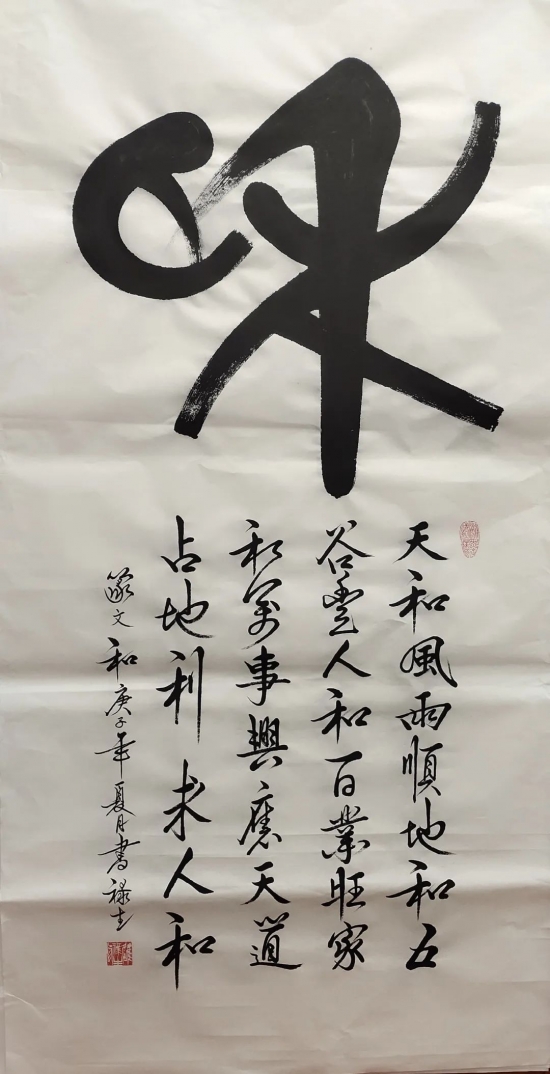 和
天和風雨順地和五
谷豐人和百業旺家
和萬事興應天道
占地利求人和
篆文和庚子年夏月書祿志